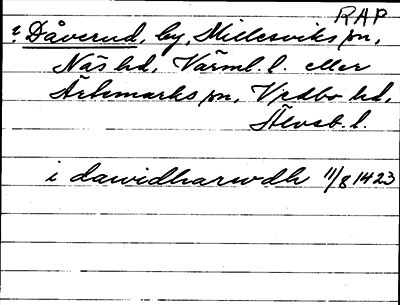 RAP
? Dåverud, by, Millesviks sn,
Näs hd, Värml. l. eller
Ärtemarks sn, Vedbo hd,
Älvsb. l.
i dawidharwdh 11/8 1423